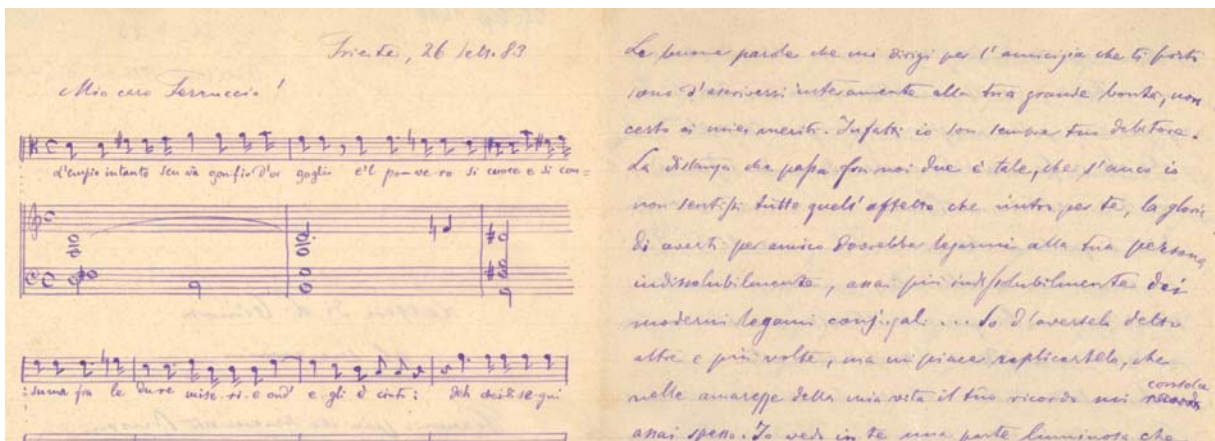 Trieste, 26 Sett. 83
Mio caro Ferruccio!
L'empio intanto sen và gonfio d'or goglio e'l po-ve-ro si cuoce e si con=
=suma fra le dure mise-ri-e ond' e-gli è cinto: deh
Le buone parole che mi dirigi per l'amicizia che ti porto
sono d'ascriversi interamente alla tua grande bontà, non
certo ai miei meriti. Infatti io son sempre tuo debitore.
La distanza che passa fra noi due è tale, che s'anco io
non sentissi tutto quell'affetto che nutro per te, la gloria
di averti per amico dovrebbe legarmi alla tua persona
indissolubilmente, assai più indissolubilmente dei
moderni legami conjugali ... So d'avertelo detto
altre e più volte, ma mi piace replicartelo, che
nelle amarezze della mia vita il tuo ricordo mi consola
assai spesso. Io vedo in te una parte luminosa che